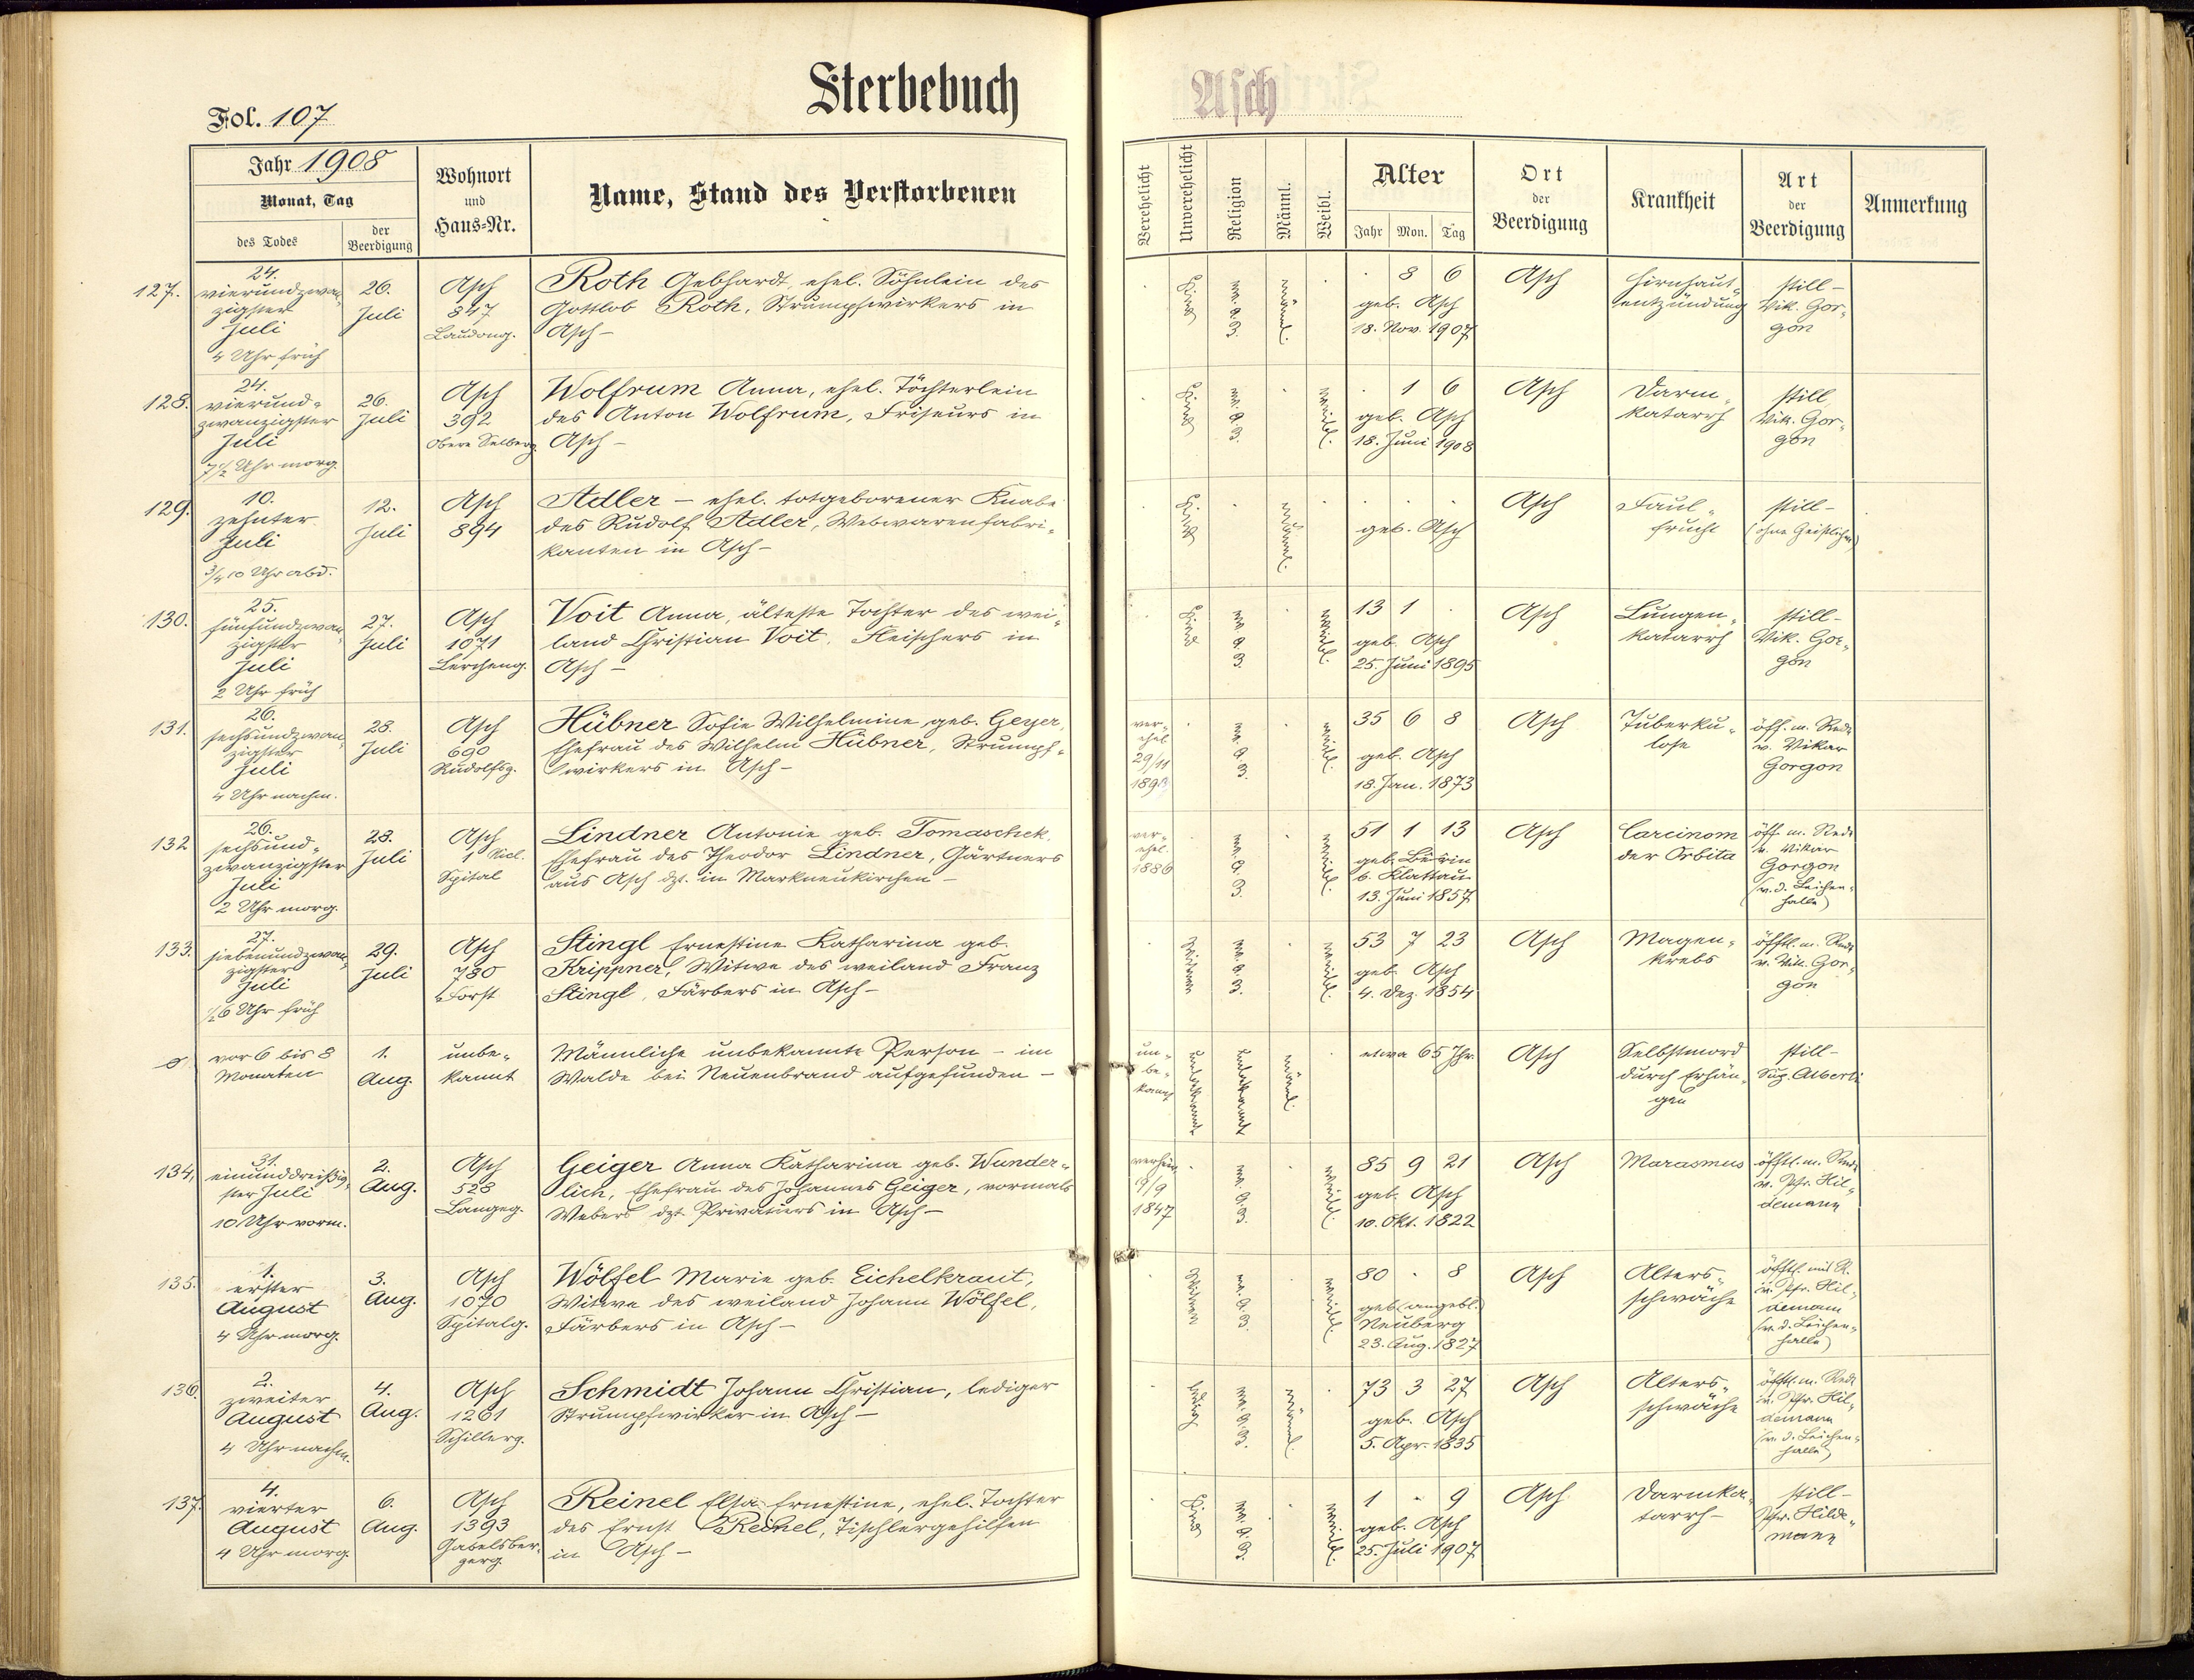 Sterbebuch
Asch
Fol. 107
Jahr 1908
Monat, Tag
des Todes
der Beerdigung
Wohnort
und
Haus-Nr.
Name, Stand des Verstorbenen
Verehelicht
Unverehelicht
Religion
Männl.
Weibl.
Alter
Jahr Mon. Tag
Ort
der
Beerdigung
Krankheit
Art
der
Beerdigung
Anmerkung
127.
24.
vierundzwan-
zigster
Juli
4 Uhr früh
26.
Juli
Asch
847
Laudong.
Roth Gebhardt, ehel. Söhnlein des
Gottlob Roth, Strumpfwirkers in
Asch –
Kind
ev. A. B.
männl.
8 6
geb. Asch
18. Nov. 1907
Asch
Hirnhaut-
entzündung
still –
Vik. Gor-
gon
128.
24.
vierund-
zwanzigster
Juli
7 1/2 Uhr morg.
26.
Juli
Asch
392
Obere Selberg.
Wolfrum Anna, ehel. Töchterlein
des Anton Wolfrum, Friseurs in
Asch –
Kind
ev. A. B.
weibl.
1 6
geb. Asch
18. Juni 1908
Asch
Darm-
katarrh
still
Vik. Gor-
gon
129.
10.
zehnter
Juli
3/4 10 Uhr abd.
12.
Juli
Asch
894
Adler – ehel. totgeborener Knabe
des Rudolf Adler, Webwarenfabri-
kanten in Asch –
Kind
männl.
geb. Asch
Asch
Faul-
frucht
still –
(ohne Geistlichen)
130.
25.
fünfundzwan-
zigster
Juli
2 Uhr früh
27.
Juli
Asch
1071
Lercheng.
Voit Anna, älteste Tochter des wei-
land Christian Voit, Fleischers in
Asch –
Kind
ev. A. B.
weibl.
13 1
geb. Asch
25. Juni 1895
Asch
Lungen-
katarrh
still –
Vik. Gor-
gon
131.
26.
sechsundzwan-
zigster
Juli
4 Uhr nachm.
28.
Juli
Asch
690
Rudolfsg.
Hübner Sofie Wilhelmine geb. Geyer,
Ehefrau des Wilhelm Hübner, Strumpf-
wirkers in Asch –
ver-
ehel.
29/11
1893
ev. A. B.
weibl.
35 6 8
geb. Asch
18. Jan. 1873
Asch
Tuberku-
lose
öff. m. Rede
v. Vikar
Gorgon
132
26.
sechsund-
zwanzigster
Juli
2 Uhr morg.
28.
Juli
Asch
1 Nicl.
Spital
Lindner Antonie geb. Tomaschek,
Ehefrau des Theodor Lindner, Gärtners
aus Asch dzt. in Markneukirchen –
ver-
ehel.
1886
ev. A. B.
weibl.
51 1 13
b. Klattau
13. Juni 1857
Asch
Carcinom
der Orbita
öff. m. Rede
v. Vikar
Gorgon
(v. d. Leichen-
halle)
133.
27.
siebenundzwan-
zigster
Juli
1/2 6 Uhr früh
29.
Juli
Asch
780
Forst
Stingl Ernestine Katharina geb.
Krippner, Witwe des weiland Franz
Stingl, Färbers in Asch –
Witwe
ev. A. B.
weibl.
53 7 23
geb. Asch
4. Dez. 1854
Asch
Magen-
krebs
öfftl. m. Rede
v. Vik. Gor-
gon
vor 6 bis 8
Monaten
1.
Aug.
unbe-
kannt
Männliche unbekannte Person – im
Walde bei Neuenbrand aufgefunden –
un-
be-
kannt
unbekannt
unbekannt
männl.
etwa 65 Jhr.
Asch
Selbstmord
durch Erhän-
gen
still –
Sup. Alberti
134.
31.
einunddreißig-
ster Juli
10 Uhr vorm.
2.
Aug.
Asch
528
Langeg.
Geiger Anna Katharina geb. Wunder-
lich, Ehefrau des Johannes Geiger, vormals
Webers dzt. Privatiers in Asch –
9/9
1847
ev. A. B.
weibl.
85 9 21
geb. Asch
10. Okt. 1822
Asch
Marasmus
öfftl. m. Rede
v. Pfr. Hil-
demann
135.
1.
erster
August
4 Uhr morg.
3.
Aug.
Asch
1070
Spitalg.
Wölfel Marie geb. Eichelkraut,
Witwe des weiland Johann Wölfel,
Färbers in Asch –
Witwe
ev. A. B.
weibl.
80 . 8
geb. (angebl.)
Neuberg
23. Aug. 1827
Asch
Alters-
schwäche
öfftl. mit R.
v. Pfr. Hil-
demann
(v. d. Leichen-
halle)
136.
2.
zweiter
August
4 Uhr nachm.
4.
Aug.
Asch
1261
Schillerg.
Schmidt Johann Christian, lediger
Strumpfwirker in Asch –
ledig
ev. A. B.
männl.
73 3 27
geb. Asch
5. Apr. 1835
Asch
Alters-
schwäche
öfftl. m. Rede
v. Pfr. Hil-
demann
(v. d. Leichen-
halle)
137.
4.
vierter
August
4 Uhr morg.
6.
Aug.
Asch
1393
Gabelsber-
gerg.
Reinel Elsa Ernestine, ehel. Tochter
des Ernst Reinel, Tischlergehilfen
in Asch –
Kind
ev. A. B.
weibl.
1 - 9
geb. Asch
25. Juli 1907
Asch
Darmka-
tarrh –
still –
Pfr. Hilde-
mann